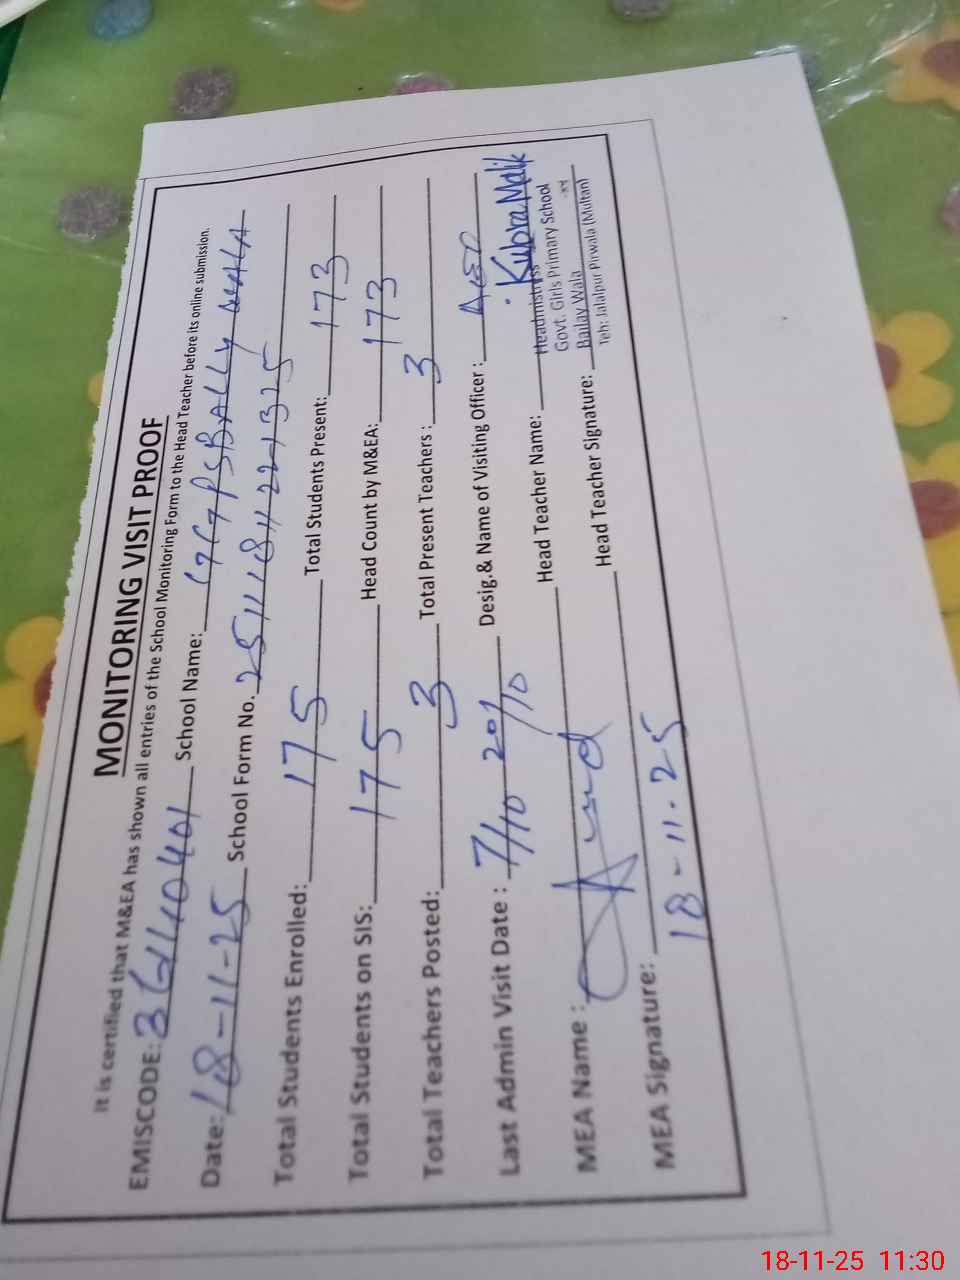 MONITORING VISIT PROOF
It is certified that M&EA has shown all entries of the School Monitoring Form to the Head Teacher before its online submission.
EMISCODE: School Name: GGPS BALLY WALA
Date: 18-11-25 School Form No. 251118112221325
Total Students Enrolled: 175 Total Students Present: 173
Total Students on SIS: 175 Head Count by M&EA: 173
Total Teachers Posted: 3 Total Present Teachers : 3
Last Admin Visit Date : 7/10 20% Desig.& Name of Visiting Officer : AEO
MEA Name : Head Teacher Name: Kubra Malik
Headmistress
Govt. Girls Primary School
MEA Signature: Head Teacher Signature: Bailay Wala
Teh: Jalalpur Pirwala (Multan)
18-11-25
18-11-25 11:30